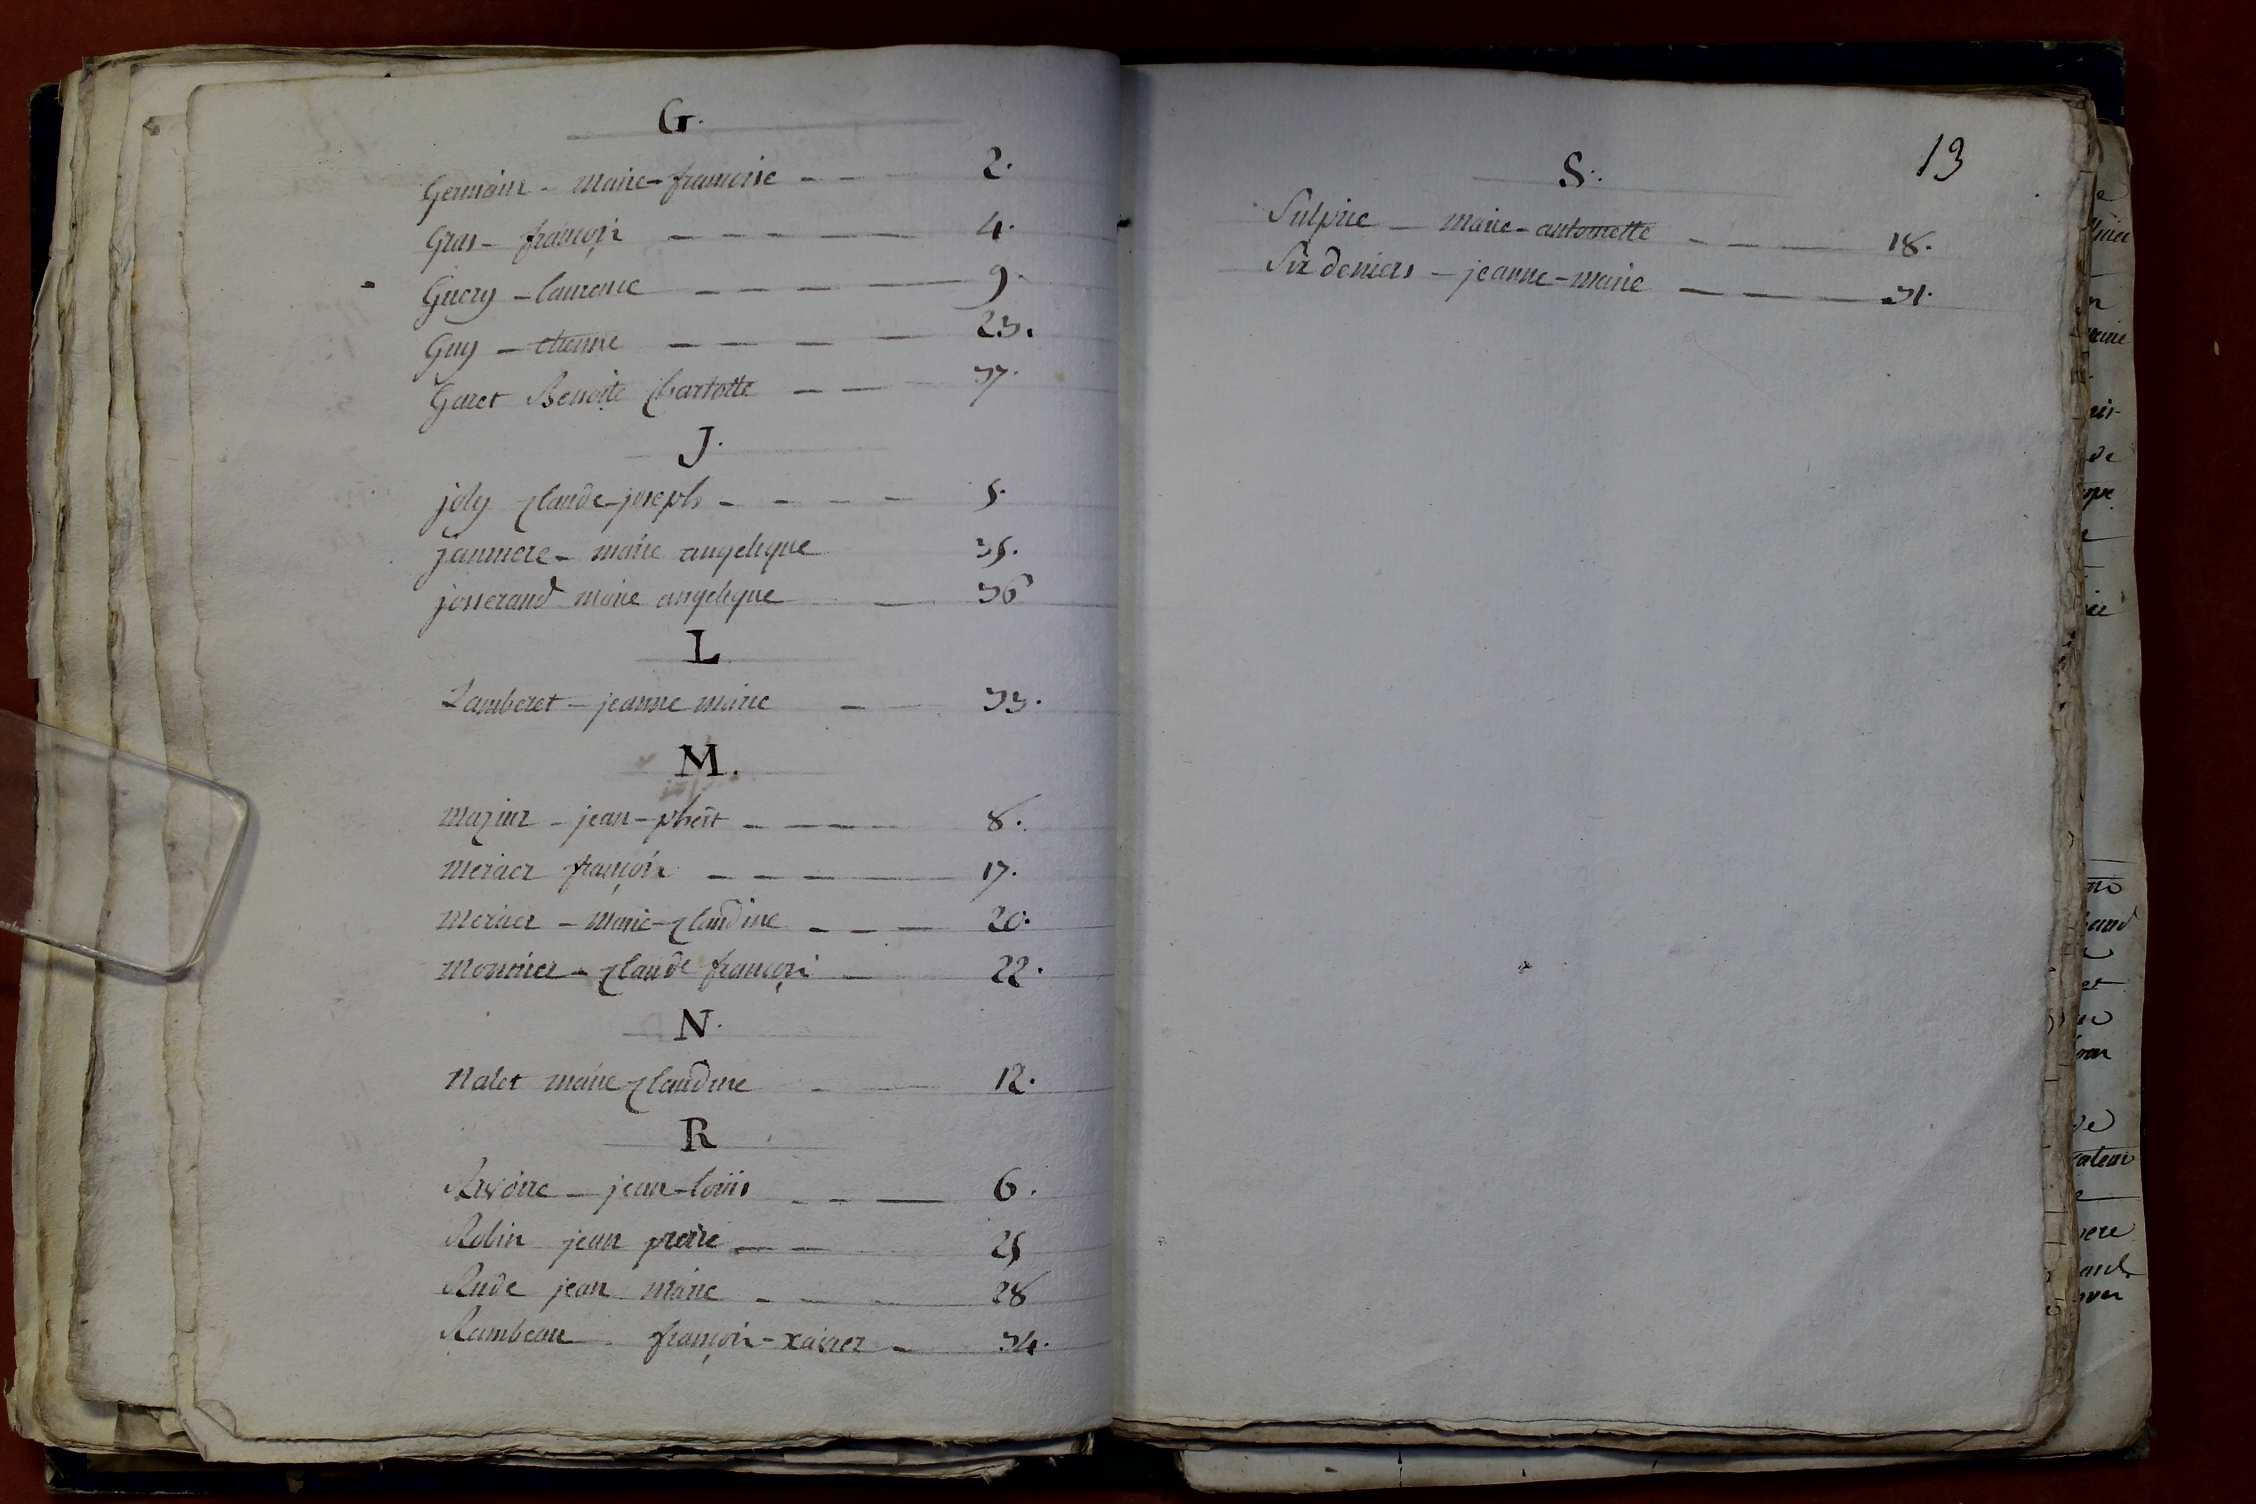 G.
Germain - marie-francoise - - - 2.
Gras - françois - - - - - 4.
Guery - laurence - - - - 9.
Guy - etienne - - - - 23.
Garet Benoite Charlotte - - - 37.
J.
joly claude-joseph - - - - 5.
janniere - marie angelique 35.
josserand marie angelique - 36
L
Lamberet - jeanne marie - 33.
M.
mazier - jean-phert - - - 8.
mercier françois - - - - 17.
mercier - marie-claudine - - - 20.
Monnier - claude françois - 22.
N.
Nalet marie claudine - - 12.
R
Rivoire - jean-loüis - - - 6.
Robin jean pierre - - 25
Rude jean marie - - - 28
Rambeau françois-xavier - 34.
13
S.
Sulpice - marie-antoinette - - - 18.
Six deniers - jeanne-marie - - - 31.